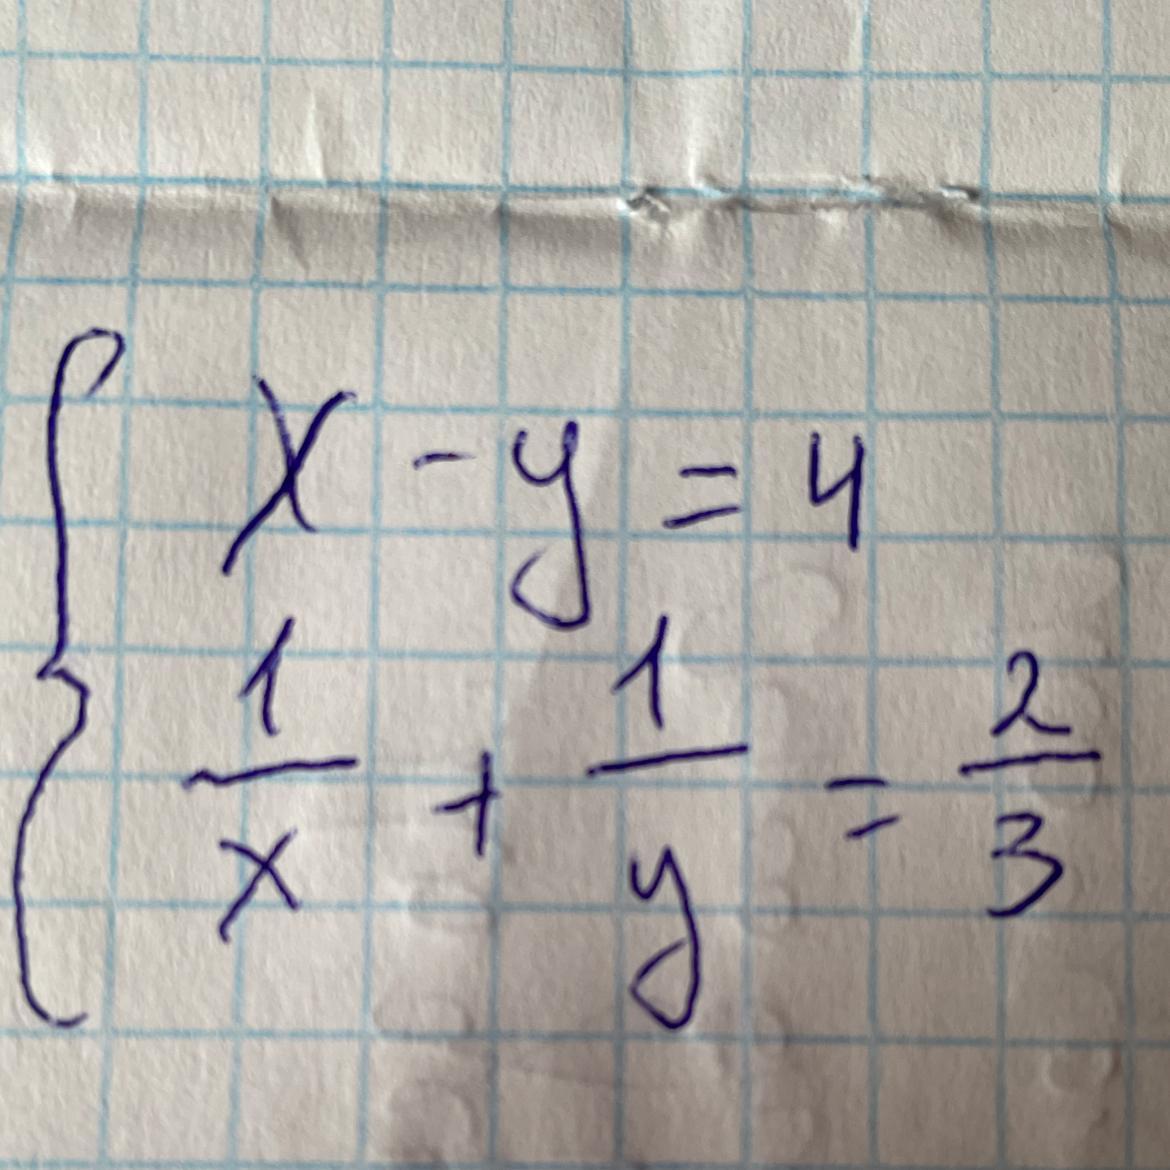 x - y = 4
1/x + 1/y = 2/3